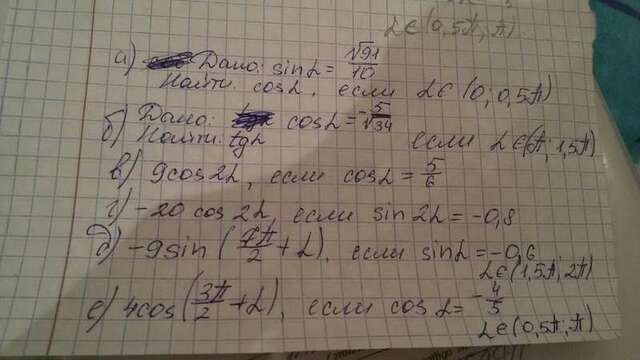 α∈(0,5π; π)
а) Дано: sinα = √91/10
Найти: cosα, если α∈(0; 0,5π)
б) Дано: cosα = -5/√34
Найти: tgα если α∈(π; 1,5π)
в) 9cos2α, если cosα = 5/6
г) -20 cos2α, если sin2α = -0,8
д) -9sin(7π/2 + α), если sinα = -0,6
α∈(1,5π; 2π)
е) 4cos(3π/2 + α), если cosα = -4/5
α∈(0,5π; π)